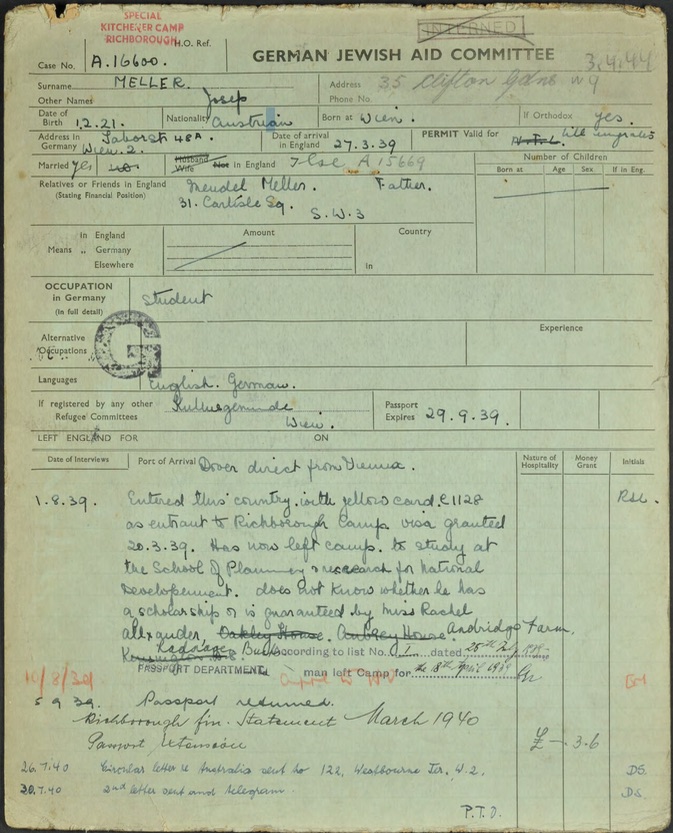 SPECIAL
KITCHENER CAMP
RICHBOROUGH
INTERNED
H.O. Ref.
GERMAN JEWISH AID COMMITTEE
3.4.44
Case No. A.16600.
Surname MELLER.
Address 35 Clifton Gdns W9
Other Names Josep
Phone No.
Date of Birth 1.2.21.
Nationality Austrian
Born at Wien.
If Orthodox yes.
Address in Germany 48A. Wien. 2.
Date of arrival in England 27.3.39
PERMIT Valid for till emigrates
Married yes no.
Husband Wife Not in England A 15669
Number of Children
Born at Age Sex. If in Eng.
Relatives or Friends in England Mendel Meller. Father.
(Stating Financial Position) 31. Carlisle Sq.
S.W.3
in England Amount Country
Means „ Germany
Elsewhere in
OCCUPATION
in Germany student
(In full detail)
Alternative Occupations
Experience
Languages English. German.
If registered by any other Refugee Committees Wien.
Passport Expires 29.9.39.
LEFT ENGLAND FOR ON
Date of Interviews Port of Arrival Dover direct from Vienna. Nature of Hospitality Money Grant Initials
1.8.39. Entered this country with yellow card C1128
as entrant to Richborough Camp. visa granted
20.3.39. Has now left camp. to study at
the School of Planning & research for National
Developement. does not know whether he has
a scholarship or is guaranteed by Miss Rachel
Alexander, Oakley House. Aubrey House Andridge Farm,
According to list No. I dated
PASSPORT DEPARTMENT. man left Camp for the 18th April 1939
10/8/39
5 9 39. Passport returned.
Richborough fin. Statement March 1940
Passport Extension £ - 3.6
26.7.40 Circular letter re Australia sent to 122, Westbourne Ter. W.2. DS.
30.7.40 2nd letter sent and telegram. DS
P.T.O.